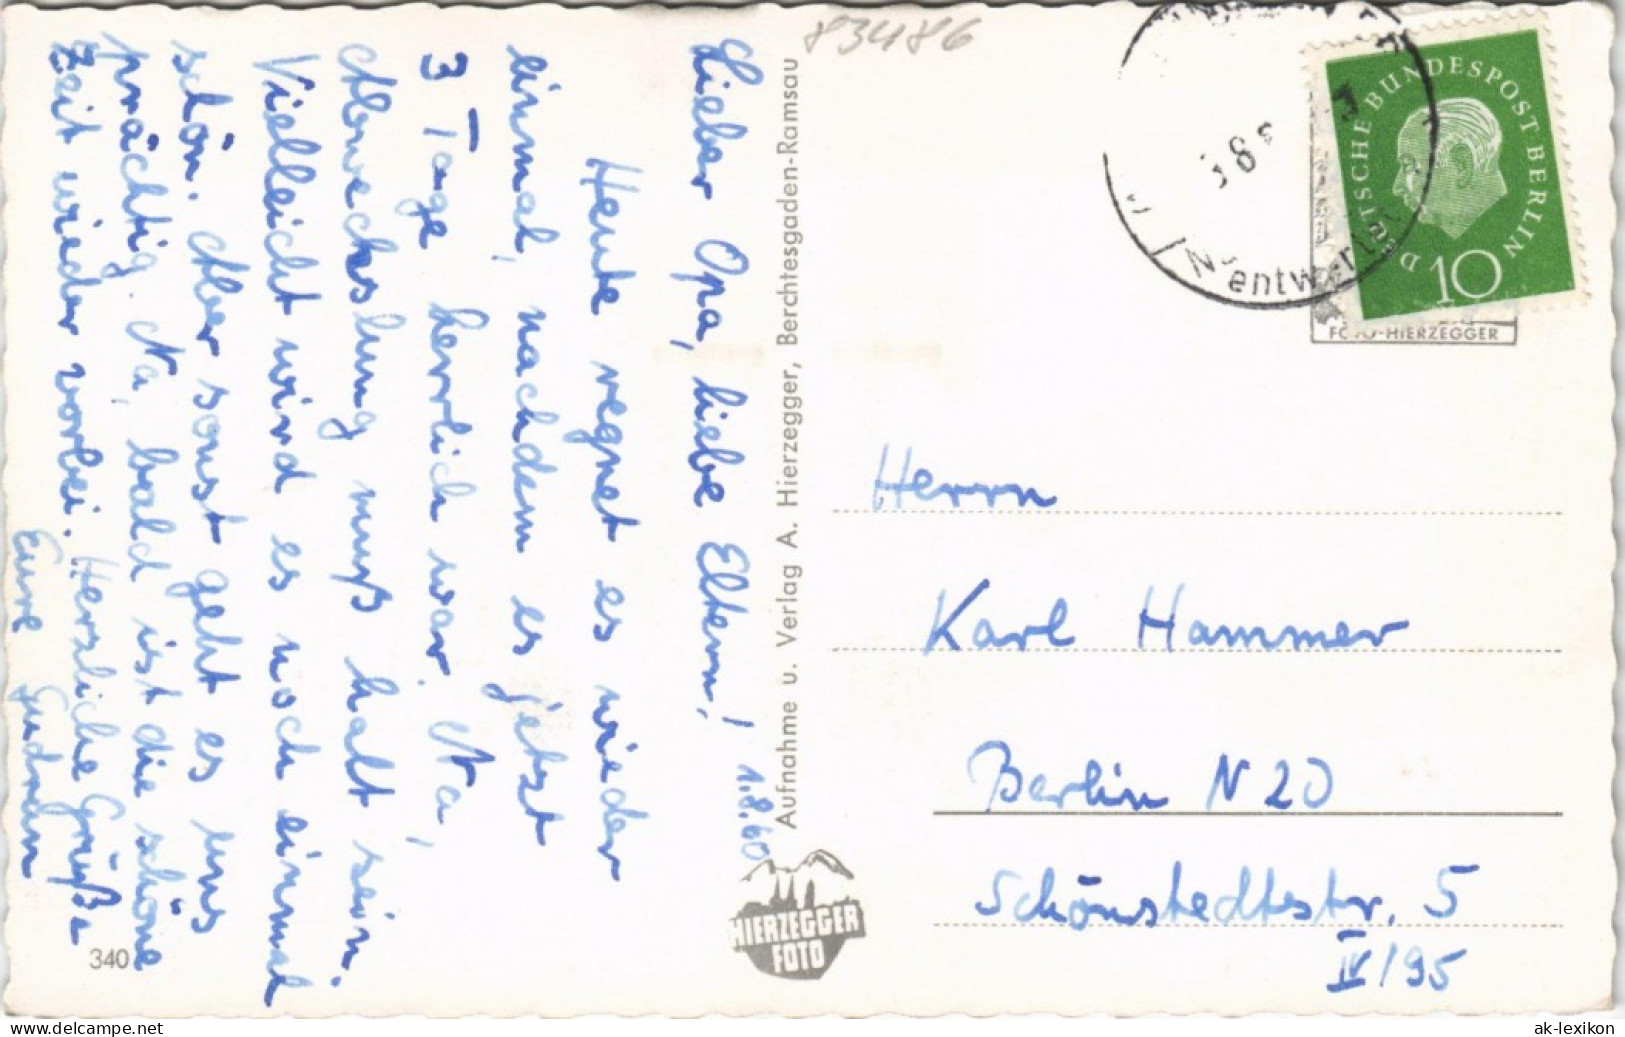 83486
Lieber Opa, liebe Eltern!
1.8.60
Heute regnet es wieder
einmal, nachdem es jetzt
3 Tage herrlich war. Na,
Abwechslung muß halt sein.
Vielleicht wird es noch einmal
schön. Aber sonst geht es uns
prächtig. Na, bald ist die schöne
Zeit wieder vorbei. Herzliche Grüße
Eure Gudrun
340
Aufnahme u. Verlag A. Hierzegger, Berchtesgaden-Ramsau
HIERZEGGER
FOTO
DEUTSCHE BUNDESPOST BERLIN
10
FOTO-HIERZEGGER
Herrn
Karl Hammer
Berlin N 20
Schönstedtstr. 5
IV/95
ak-lexikon.de
www.delcampe.net
ak-lexikon